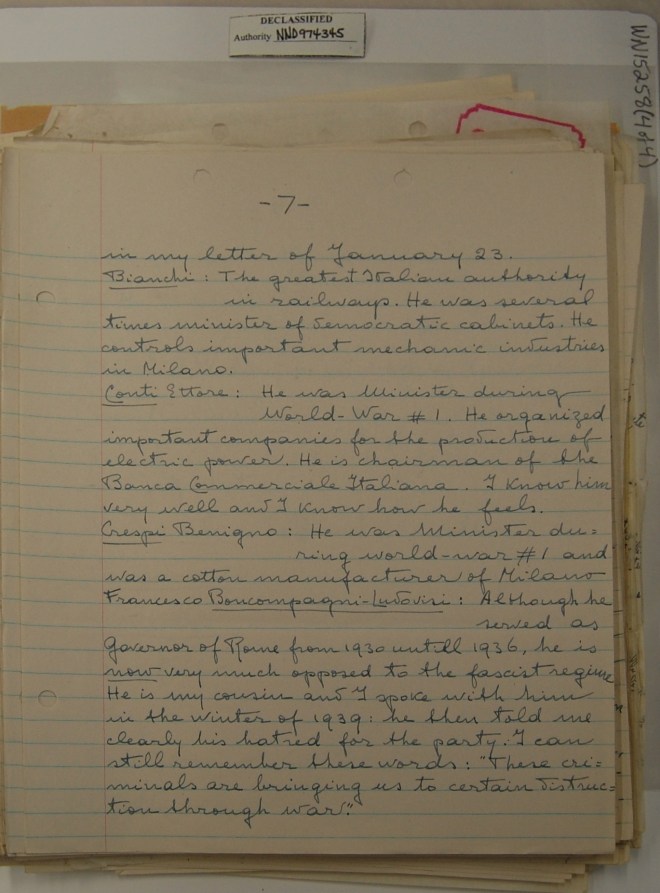 DECLASSIFIED
Authority NND974345
WN15258(4of4)
-7-
in my letter of January 23.
Bianchi: The greatest Italian authority
in railways. He was several
times minister of democratic cabinets. He
controls important mechanic industries
in Milano.
Conti Ettore: He was Minister during
World-War #1. He organized
important companies for the production of
electric power. He is chairman of the
Banca Commerciale Italiana. I know him
very well and I know how he feels.
Crespi Benigno: He was Minister du=
ring world-war #1 and
was a cotton manufacturer of Milano
Francesco Boncompagni-Ludovisi: Although he
served as
Governor of Rome from 1930 untill 1936, he is
now very much opposed to the fascist regime
He is my cousin and I spoke with him
in the winter of 1939: he then told me
clearly his hatred for the party. I can
still remember these words: "These cri=
minals are bringing us to certain distruc=
tion through war."